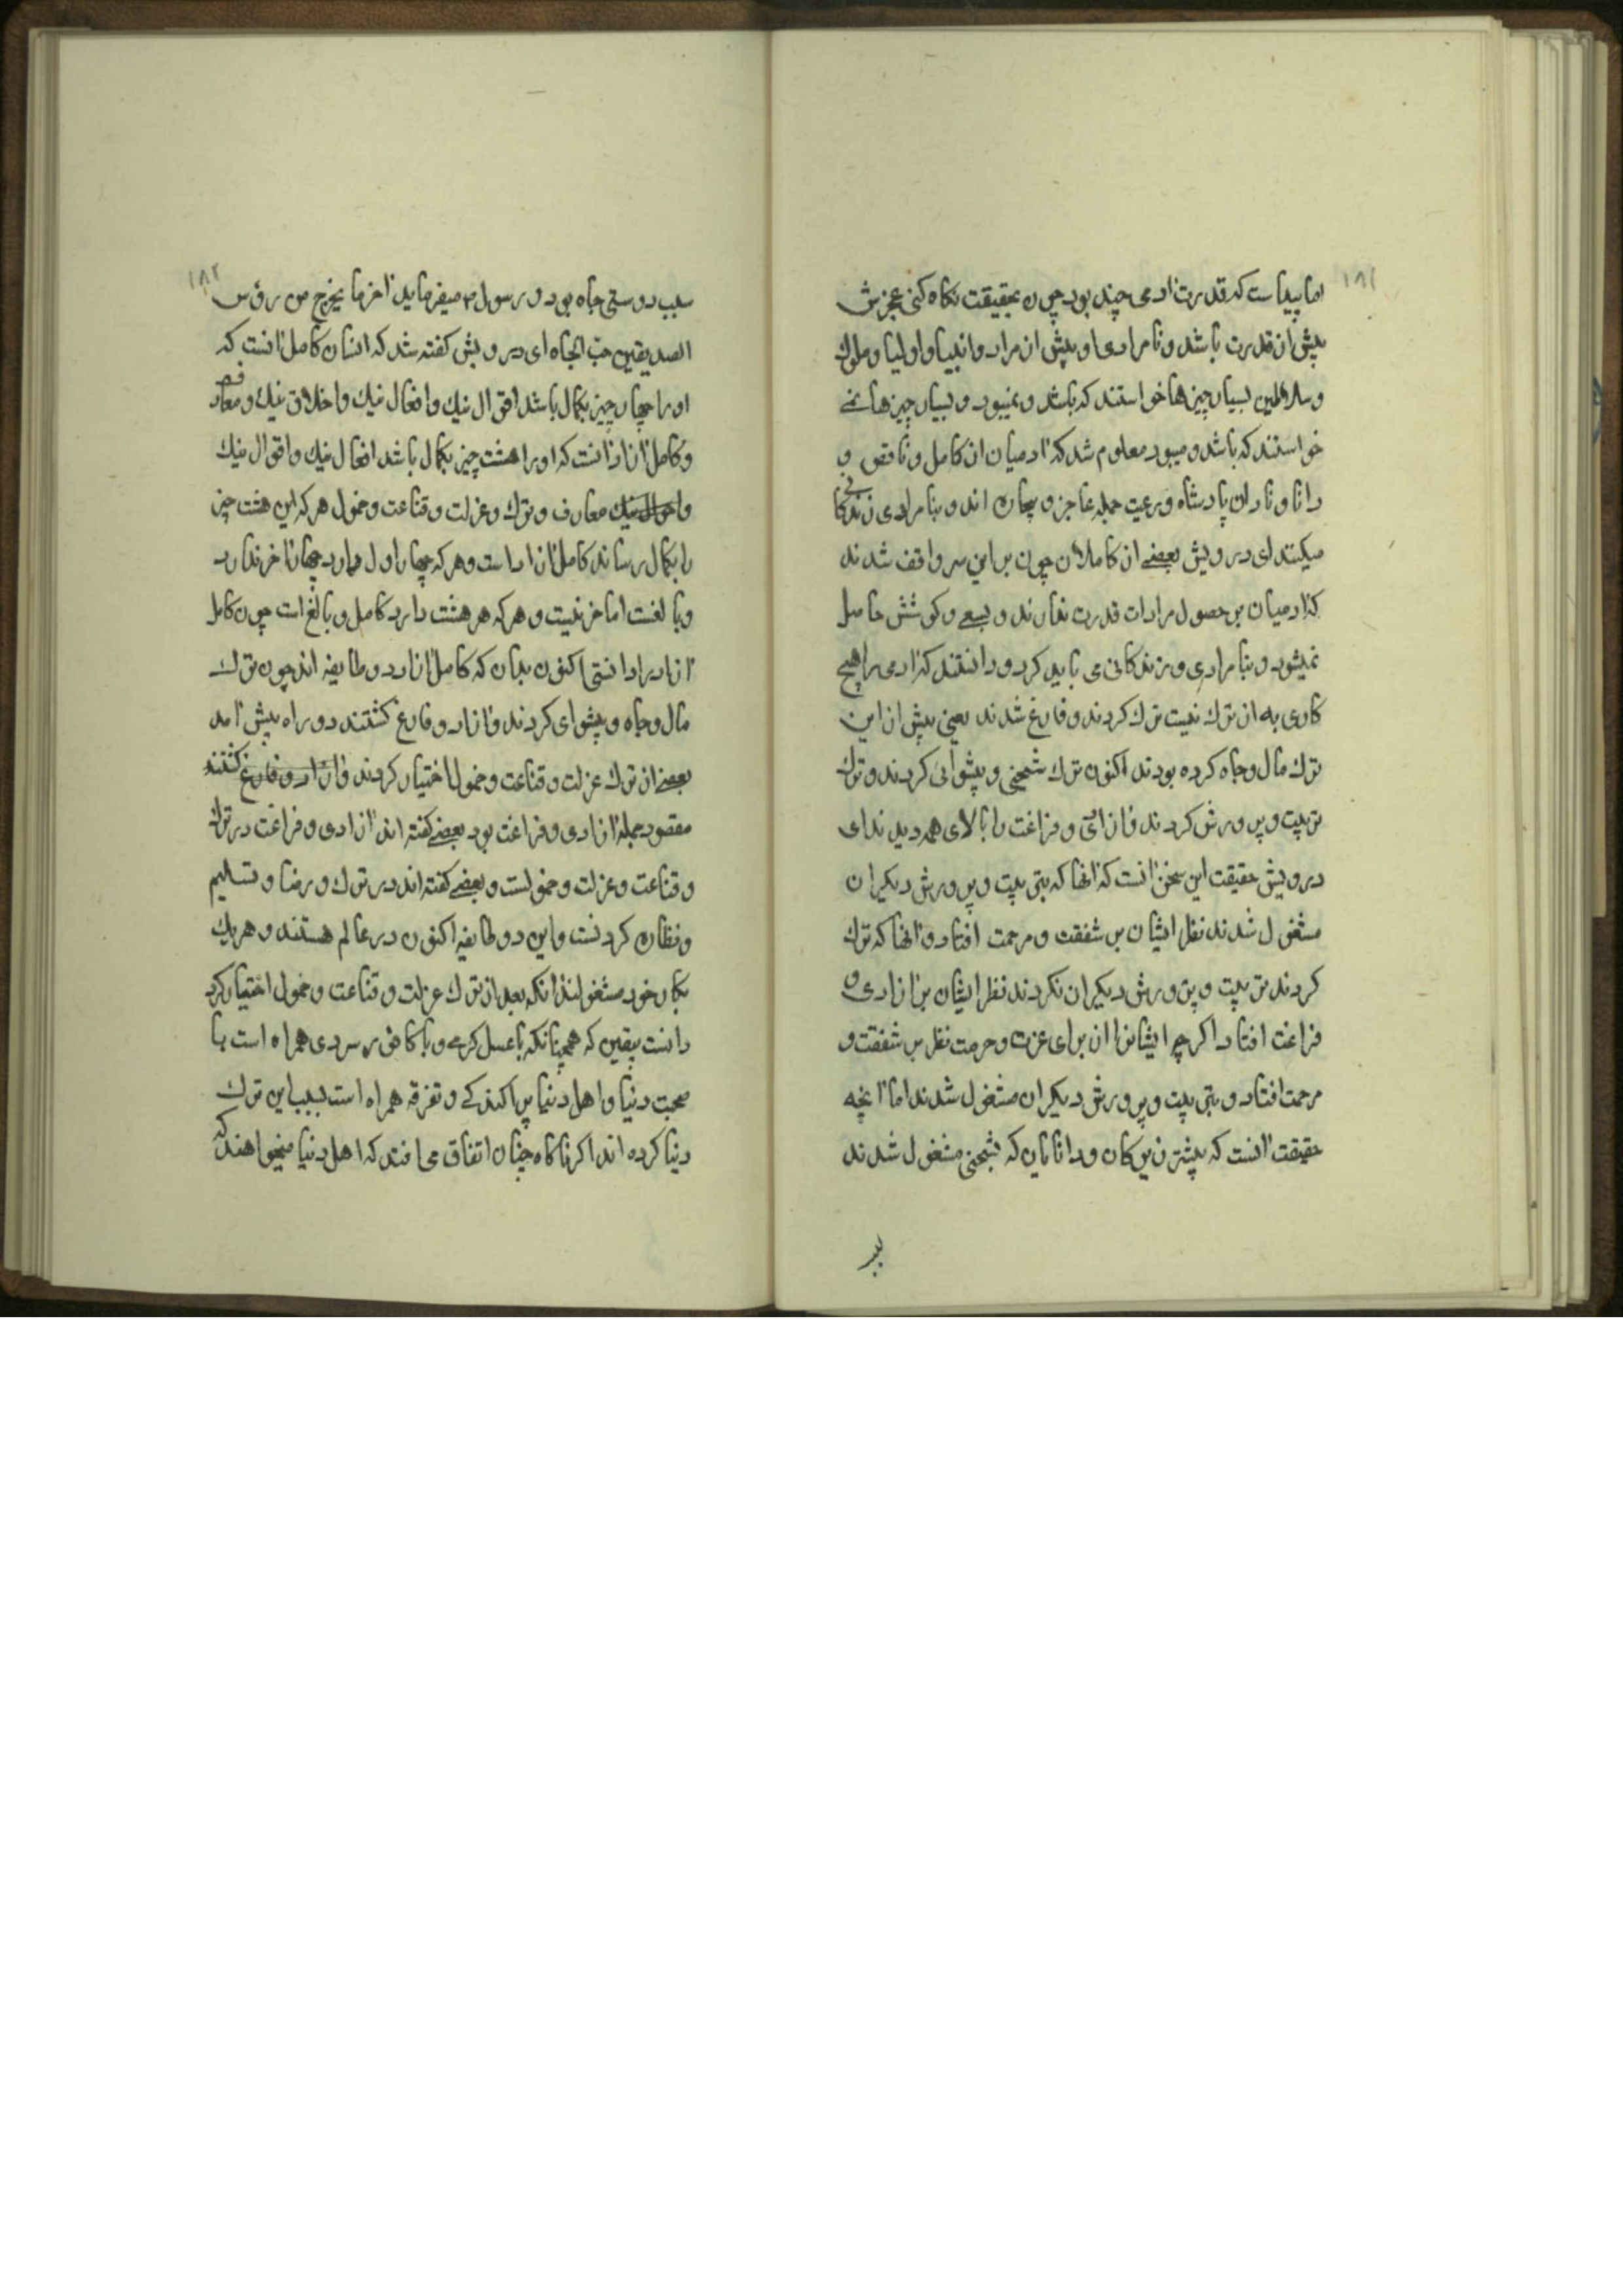 ۱۸۱
اما پیداست که قدرت آدمی چند بود چون بحقیقت نکاه کنی عجزش
بیش از قدرت باشد و نامرادی او بیش از مراد و انبیا و اولیا و ملوک
و سلاطین بسیار چیزها خواستند که باشد و نمیبود و بسیار چیزها نمی
خواستند که باشد و میبود معلوم شد که آدمیان از کامل و ناقص و
دانا و نادان پادشاه و رعیت جمله عاجز و بیچاره اند و بنامرادی زندکانی
میکنند ای درویش بعضی از کاملان چون براین سر واقف شدند
که آدمیان بر حصول مرادات قدرت ندارند و بسعی و کوشش حاصل
نمیشود و بنامرادی و زندکانی می باید کرد و دانستند که آدمی را هیچ
کاری به از ترک نیست ترک کردند و فارغ شدند یعنی پیش از این
ترک مال و جاه کرده بودند اکنون ترک شیخی و پیشوائی کردند و ترک
تربیت و پرورش کردند و ازادی و فراغت را بالای همه دیدند ای
درویش حقیقت این سخن آنست که آنها که بتربیت و پرورش دیکران
مشغول شدند نظر ایشان بر شفقت و مرحمت افتاد و آنها که ترک
کردند تربیت و پرورش دیکران نکردند نظر ایشان بر آزادی و
فراغت افتاد اکرچه ایشانرا از برای عزت و حرمت نظر بر شفقت و
مرحمت افتاد و بتربیت و پرورش دیکران مشغول شدند اما آنچه
حقیقت آنست که بیشتر زیرکان و دانایان که بشیخی مشغول شدند
۱۸۲
سبب دوستی جاه بود و رسول ۳ میفرماید آخر ما یخرج من رؤس
الصدیقین حب الجاه ای درویش کفته شد که انسان کامل آنست که
او را چهار چیز بکمال باشد اقوال نیک و افعال نیک و اخلاق نیک و معارف
و کامل آزاد آنست که او را هشت چیز بکمال باشد افعال نیک و اقوال نیک
و احوال نیک معارف و ترک و عزلت و قناعت و خمول هر که این هشت چیز
را بکمال رساند کامل آزاد است و هر که چهار اول دارد چهار آخر ندارد
و بالغست اما حر نیست و هر که هر هشت دارد کامل و بالغ است چون کامل
آزاد را دانستی اکنون بدان که کامل آزاد دو طایفه اند چون ترک
مال و جاه و پیشوای کردند و ازاد و فارغ کشتند دو راه پیش آمد
بعضی از ترک عزلت و قناعت و خمول اختیار کردند و ازاد و فارغ کشتند
مقصود جمله آزادی و فراغت بود بعضی کفته اند آزادی و فراغت در ترک
و قناعت و عزلت و خمولست و بعضی کفته اند در ترک و رضا و تسلیم
و نظاره کردنست و این دو طایفه اکنون در عالم هستند و هر یک
بکار خود مشغولند آنکه بعد از ترک عزلت و قناعت و خمول اختیار کرد
دانست بیقین که همچنانکه با عسل کرمی و با کافور سردی همراه است با
صحبت دنیا و اهل دنیا پراکندکی و تفرقه همراه است بسبب این ترک
دنیا کرده اند اکر ناکاه چنان اتفاق می افتد که اهل دنیا میخواهند که